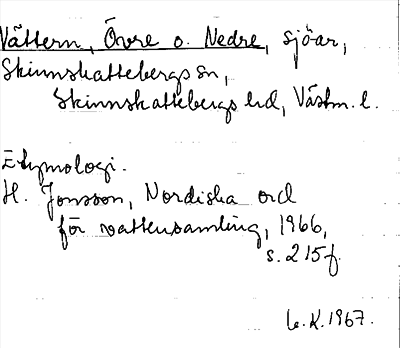 Vättern, Övre o. Nedre, sjöar,
Skinnskattebergs sn,
Skinnskattebergs hd, Västm. l.
Etymologi.
H. Jonsson, Nordiska ord
för vattensamling, 1966,
s. 215f.
L.K. 1967.